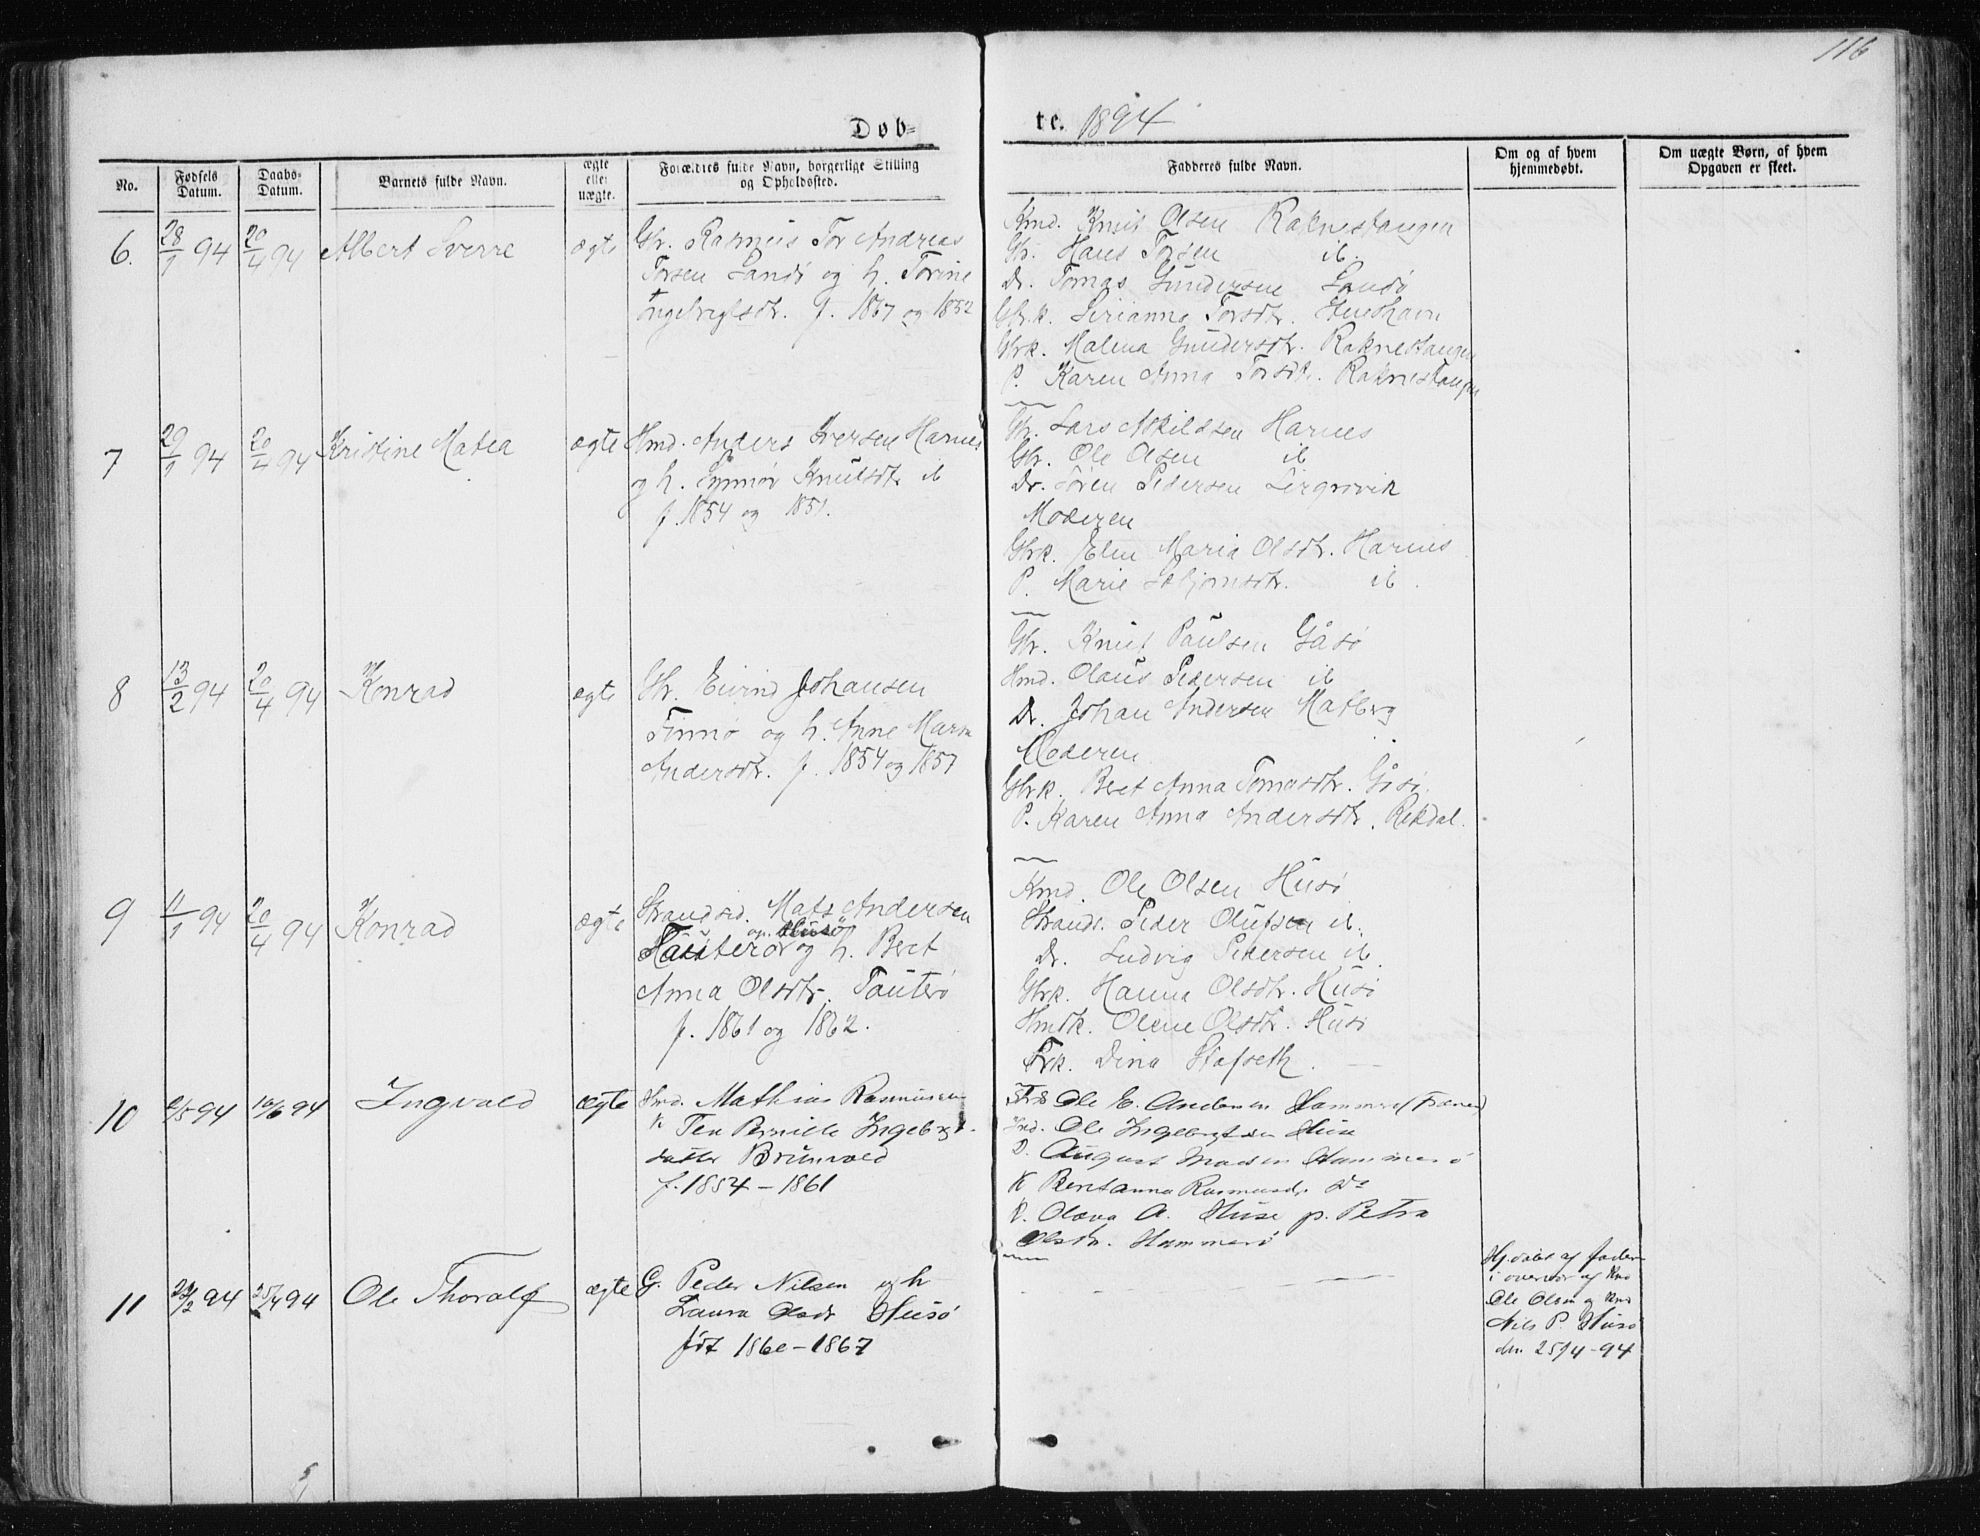 116
Døb=
te. 1894
No.
Fødsels Datum.
Daabs-Datum.
Barnets fulde Navn.
ægte eller uægte.
Forældres fulde Navn, borgerlige Stilling og Opholdssted.
Fadderes fulde Navn.
Om og af hvem hjemmedøbt.
Om uægte Børn, af hvem Opgaven er skeet.
6. 28/1 94 20/4 94 Albert Sverre ægte
Gbr. Rasmus Tor Andreas
Torsen Sandø og h. Torine
Ingebregtsdt. f. 1867 og 1852
Kmd. Knut Olsen Raknestangen
Gbr. Hans Torsen ib.
Dr. Tomas Gundersen Sandø
Gbrk. Sirianna Torsdtr. Stenshavn
Gbrk. Malena Gundersdtr. Raknestangen
P. Karen Anna Torsdtr. Raknestangen
7 29/1 94 20/4 94 Kristine Matea ægte
Hmd. Anders Iversen Harnes
og h. Synnøv Knutsdtr ib
f. 1854 og 1851.
Gbr. Lars Askildsen Harnes
Gbr. Ole Olsen ib
Dr. Søren Pedersen
Moderen
Gbrk. Elen Maria Olsdtr. Harnes
P. Marie ib.
8 13/2 94 20/4 94 Konrad ægte
Gbr. Eivind Johansen
Finnø og h. Anne Marta
Andersdtr. f. 1854 og 1857
Gbr. Knut Paulsen Gåsø
Hmd. Olaus Pedersen ib
Dr. Johan Andersen Malberg
Moderen
Gbrk. Beret Anna Tomasdtr. Gåsø.
P. Karen Anna Andersdtr. Rekdal.
9 11/1 94 20/4 94 Konrad ægte
Strandsid. Mats Andersen
Husø og h. Beret
Anna Olsdtr. Tauterø
f. 1861 og 1862.
Kmd. Ole Olsen Husø
Strands. Peder Olufsen ib.
Dr. Ludvig Pedersen ib.
Gbrk. Hanna Olsdtr. Husø
Hmdk. Olene Olsdtr. Husø
Frk. Dina Stafseth.
10 2/5 94 10/6 94 Ingvald ægte
Hmd. Mathias Rasmussen
K Pernille Ingebrgt-
datter Brunvold
f. 1854 – 1861
Ole E. Andersen Hammerø
Hmd. Ole Ingebrgtsen Huse
D. August Madsen Hammerø
K Beretanna Rasmusdr Do
K. Olava A. Huse p. Petra
Olsdr. Hammerø
11 94 25/4 94 Ole Thoralf ægte
G. Peder Nilsen og h
Laura Olsdr Husø
født 1860 – 1867
Hj.døbt af faderen
i overvær af Kmd
Ole Olsen og Kmd
Nils P. Husø
den 25/4-94